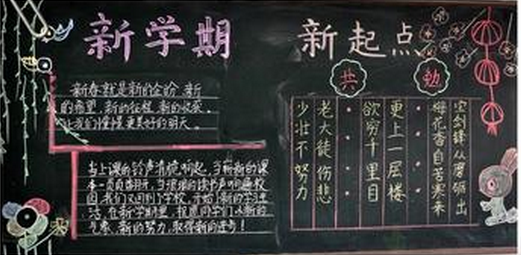 新学期 新起点
共勉
新春就是新的台阶,新
的希望,新的征程,新的收获,
让我们憧憬更美好的明天。
当上课的铃声清脆响起,当崭新的课
本一页页翻开,当琅琅的读书声响遍校
园,我们又回到了学校,开始了新的学习生
活,在新学期里,祝愿同学们以新的
气象,新的努力,取得新的进步!
宝剑锋从磨砺出
梅花香自苦寒来
更上一层楼
欲穷千里目
老大徒伤悲
少壮不努力